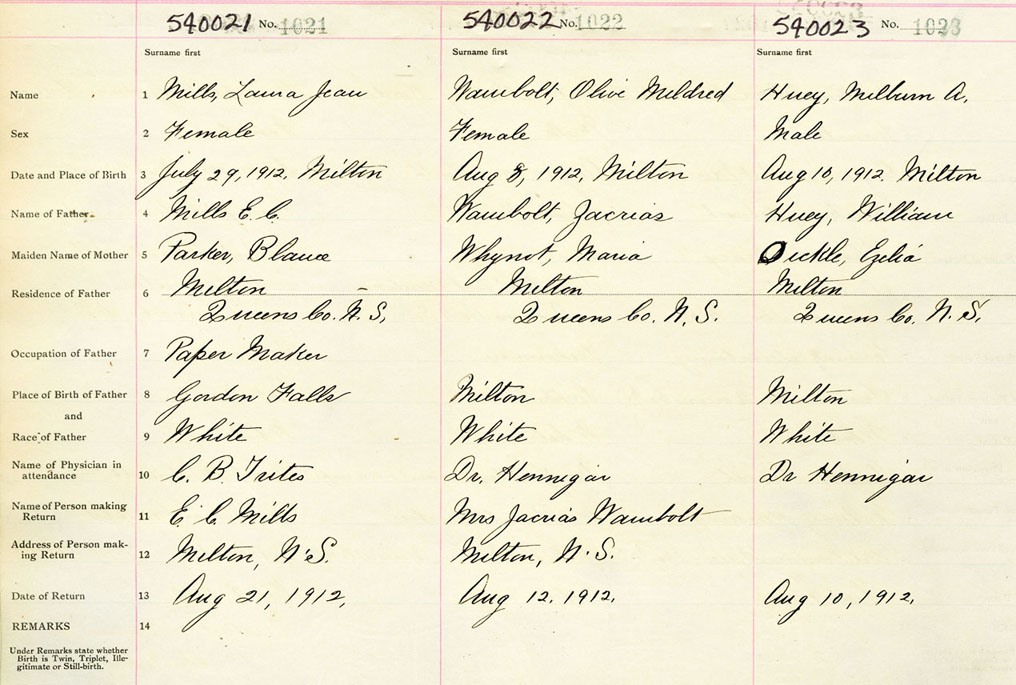 540021 No. 1021 540022 No. 1022 540023 No. 1023
Surname first Surname first Surname first
Name 1 Mills, Laura Jean Wambolt, Olive Mildred Huey, Milburn A.
Sex 2 Female Female Male
Date and Place of Birth 3 July 29, 1912. Milton Aug 8, 1912. Milton Aug 10, 1912. Milton
Name of Father 4 Mills E. C. Wambolt, Zacrias Huey, William
Maiden Name of Mother 5 Parker, Blance Whynot, Maria Dickle, Ezelia
Residence of Father 6 Milton Milton Milton
Queens Co. N. S. Queens Co. N. S. Queens Co. N. S.
Occupation of Father 7 Paper Maker
Place of Birth of Father 8 Gordon Falls Milton Milton
and
Race of Father 9 White White White
Name of Physician in
attendance 10 C. B. Trites Dr. Hennigar Dr Hennigar
Name of Person making
Return 11 E. C. Mills Mrs Zacrias Wambolt
Address of Person mak-
ing Return 12 Milton, N. S. Milton, N. S.
Date of Return 13 Aug 21, 1912. Aug 12. 1912. Aug 10, 1912.
REMARKS 14
Under Remarks state whether
Birth is Twin, Triplet, Ille-
gitimate or Still-birth.